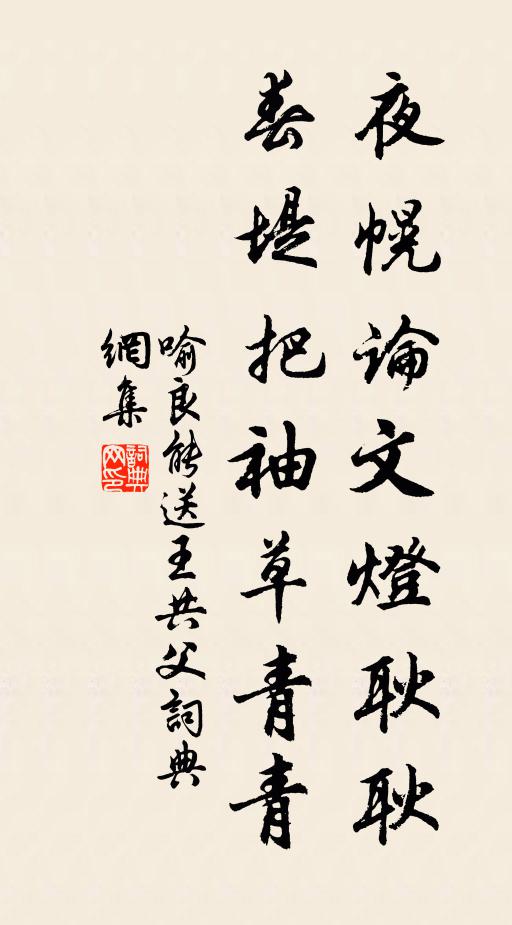 夜幌論文燈耿耿
春堤把袖草青青
喻良能送王共父詞典
網集
詞典
网印